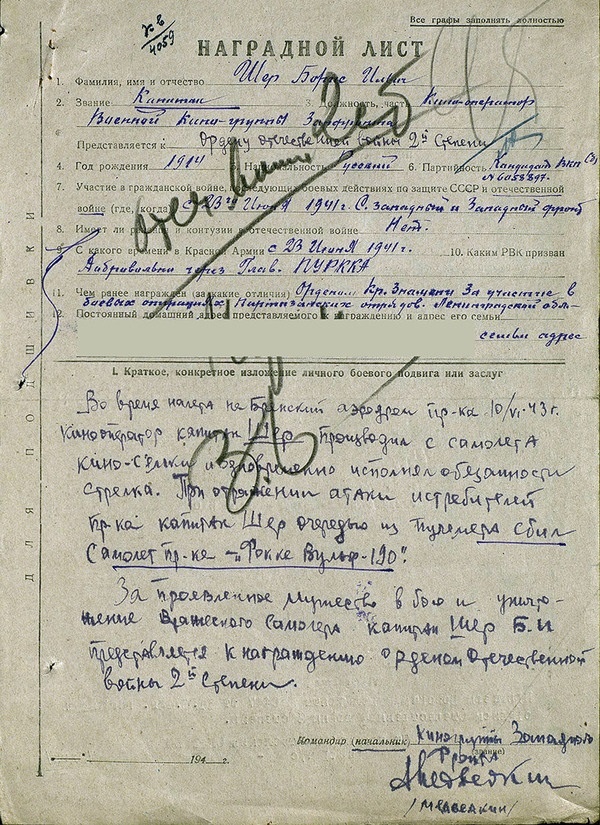 Все графы заполнять полностью
4059
НАГРАДНОЙ ЛИСТ
1. Фамилия, имя и отчество Шер Борис Ильич
2. Звание Капитан 3. Должность, часть Кино-оператор
Военной Кино-группы Зап.фронта
Представляется к Ордену отечественной войны 2й Степени
4. Год рождения 1914 Национальность Русский 6. Партийность Кандидат ВКП(б)
№6058897.
7. Участие в гражданской войне, последующих боевых действиях по защите СССР и отечественной
войне (где, когда) с 23го Июня 1941 г. С. западный и Западный фронт
8. Имеет ли ранения и контузии в отечественной войне Нет.
9. С какого времени в Красной Армии с 23 Июня 1941 г. 10. Каким РВК призван
Добривильни через Глав. ПУРККА
11. Чем ранее награжден (за какие отличия) Орденом Кр. Знамени За участие в
боевых операциях Партизанских отрядов. Ленинградской обл.
12. Постоянный домашний адрес представляемого к награждению и адрес его семьи
семьи адрес
ДЛЯ ПОДШИВКИ
I. Краткое, конкретное изложение личного боевого подвига или заслуг
Во время налета на Брянский аэродром пр-ка 10/VI-43 г.
Кинооператор капитан Шер производил с самолета
кино-с'емки и одновременно исполнял обязанности
стрелка. При отражении атаки истребителей
пр-ка капитан Шер очередью из пулемета сбил
Самолет пр-ка – „Фокке Вульф-190".
За проявленное мужество в бою и уничто-
жение вражеского самолета капитан Шер Б.И
представляется к награждению орденом Отечественной
войны 2й Степени.
Командир (начальник) Киногруппы Западного
(звание)
Фронта
194 г.
/МЕДВЕДКИН/